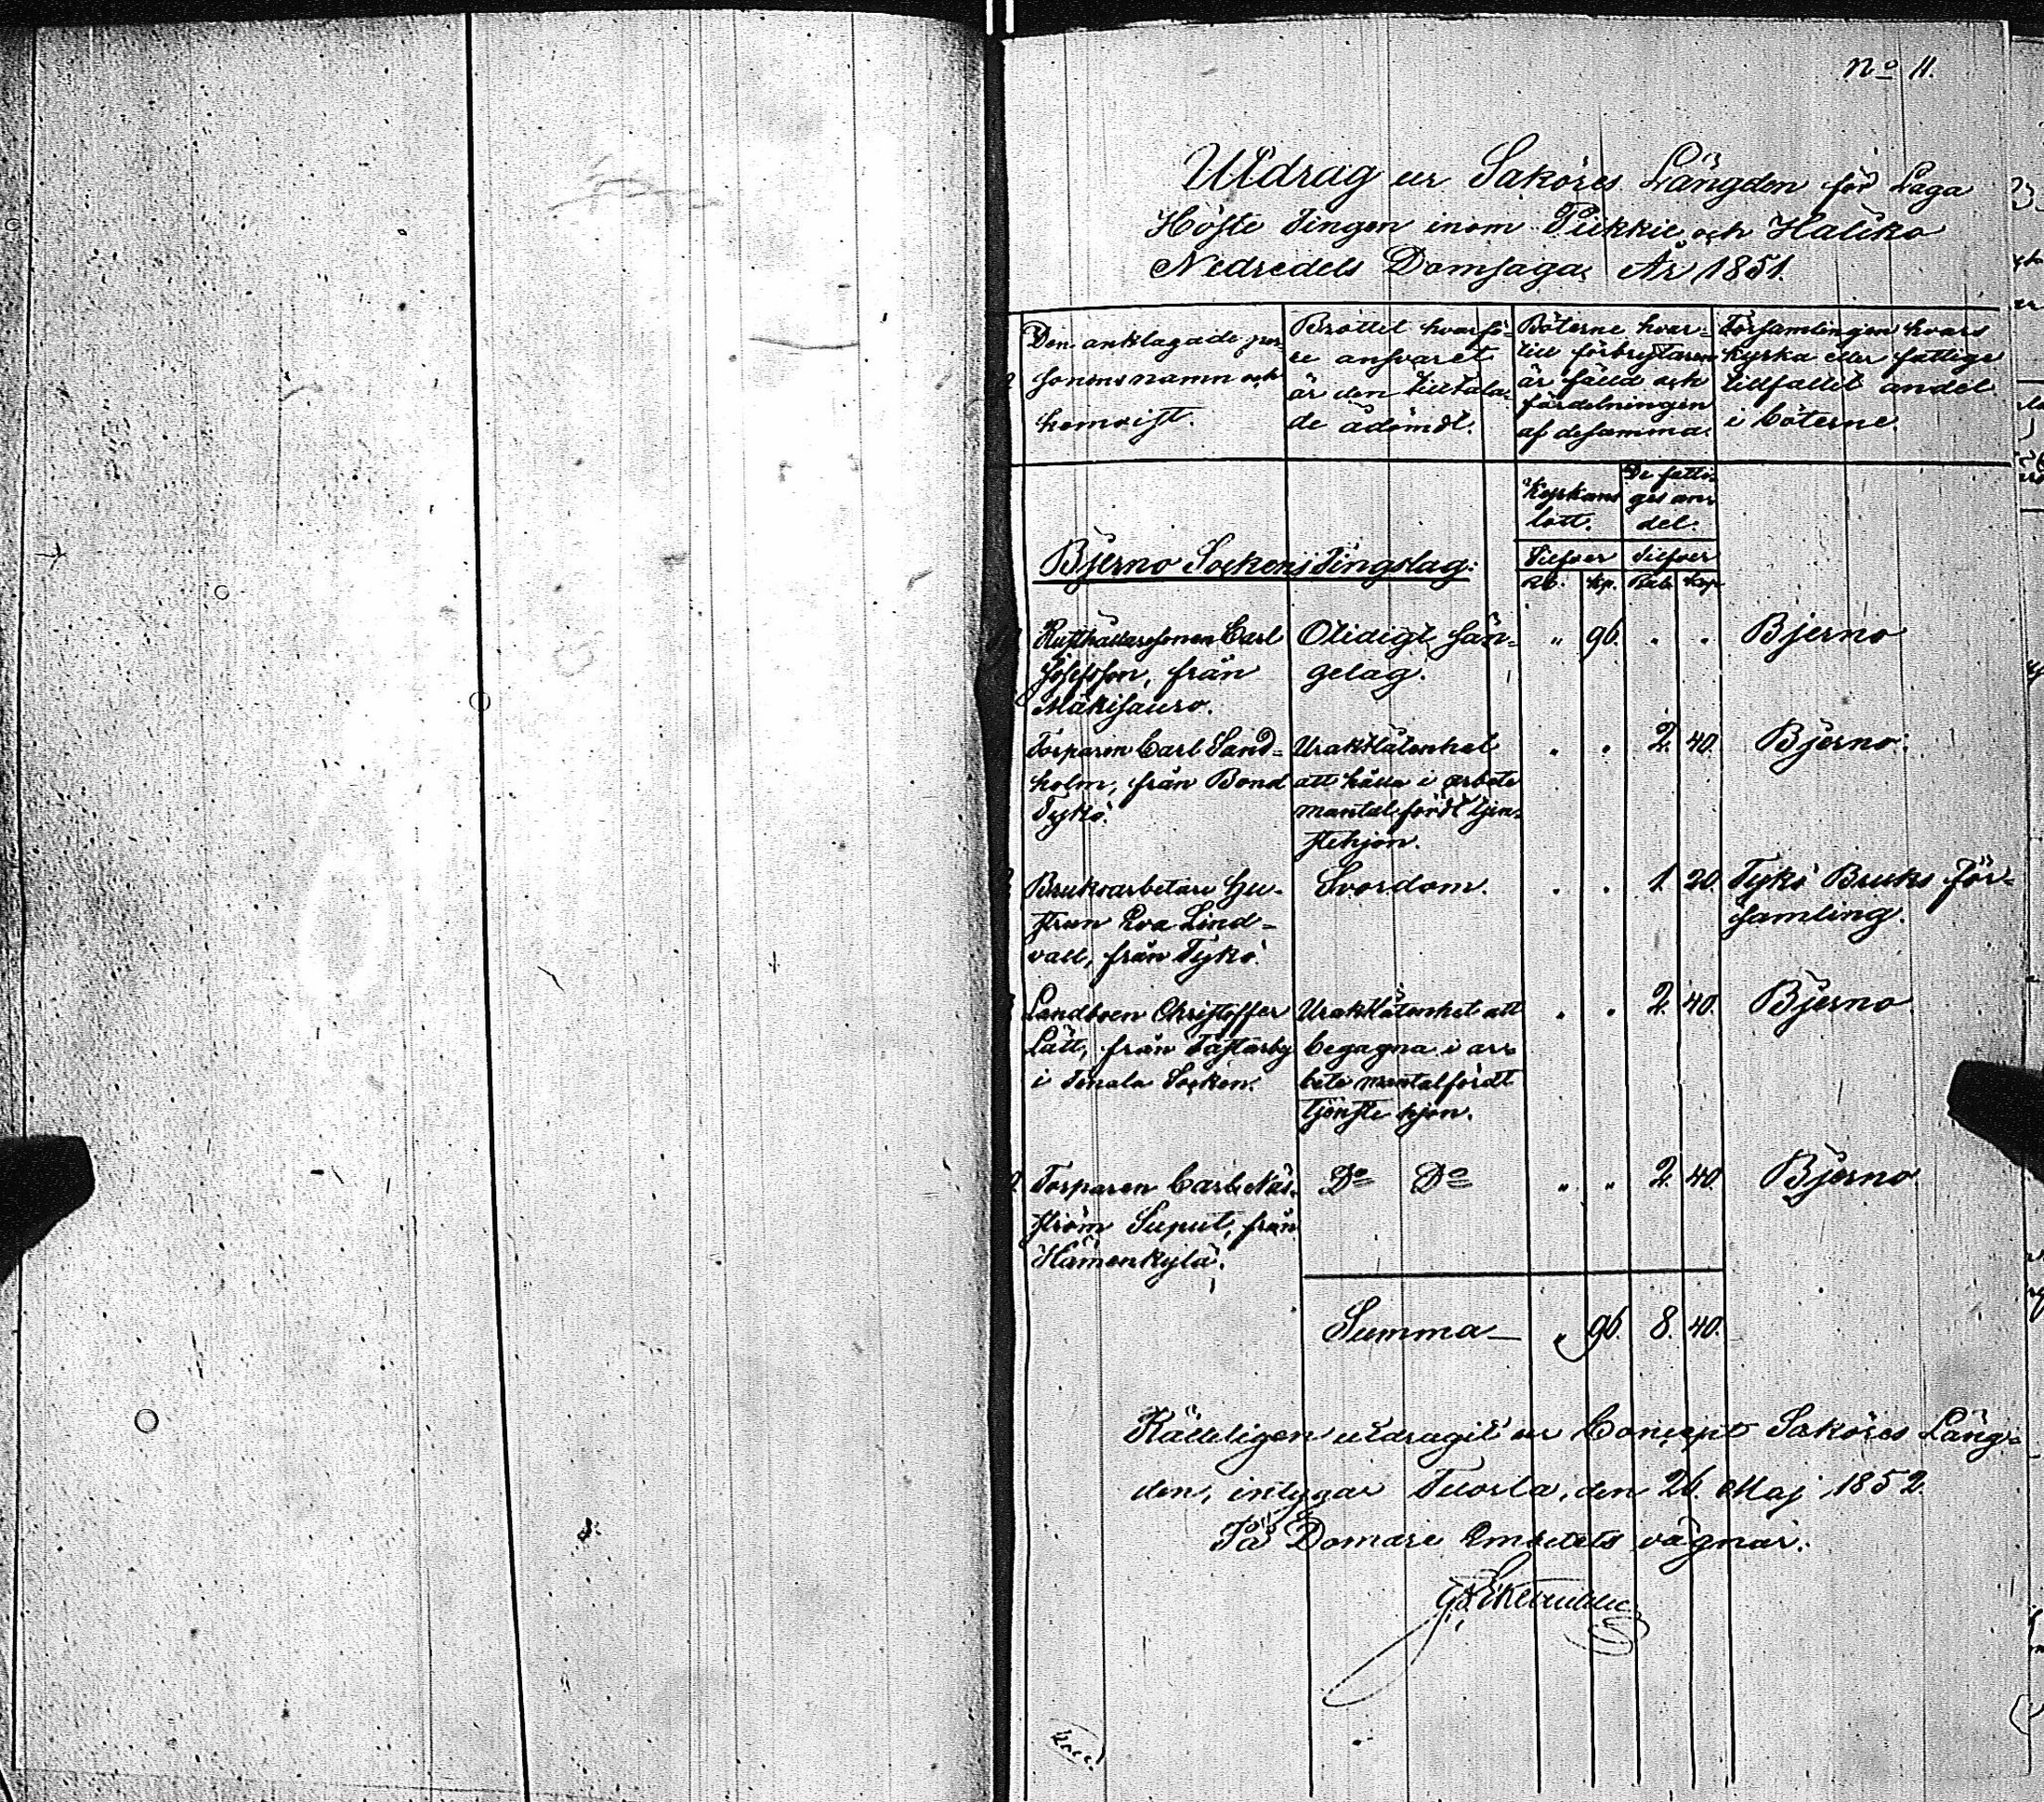 No 11.
Utdrag ur Saköres Längden för Laga
Höste Tingen inom Piikkie och Haliko
Nedredels Domsaga, År 1851.
Den anklagade per-
sonens namn och
hemvist.
Brottet hvarfö-
re ansvaret
är den tilltala-
de ådömdt.
Böterne hvar-
till förbrytaren
är fälld och
fördelningen
af desamma.
Församlingen hvars
kyrka eller fattige
tillfallit andel
i böterne.
Kyrkans
lott.
De fatti-
ges an-
del.
Silfver Silfver
Rb. Kp. Rub. Kop.
Bjerno Sockens Tingslag:
Rusthållaresonen Carl
Josefsson, från
Mäkisauro.
Olidigt sän-
gelag.
" 96. " " Bjerno
Torparen Carl Sand-
holm, från Bond
Tykö.
Uraktlåtenhet
att hålla i arbete
mantalsfördt tjen-
stehjon.
" " 2. 40. Bjerno.
Bruksarbetare hu-
strun Eva Lind-
vall, från Tykö.
Svordom.
" " 1. 20. Tykö Bruks för-
samling.
Landboen Christoffer
Lätt, från Täftarby
i Tenala Socken.
Uraktlåtenhet att
begagna i ar-
bete mantalsfördt
tjenste hjon.
" " 2. 40. Bjerno
Torparen Carl Näs-
ström Suput, från
Hämenkylä.
Do Do
" " 2. 40. Bjerno
Summa " 96. 8. 40.
Rätteligen utdragit ur Concept Saköres Läng-
den, intygar Tuorla, den 26. Maj 1852.
På Domare Embetets vägnar.